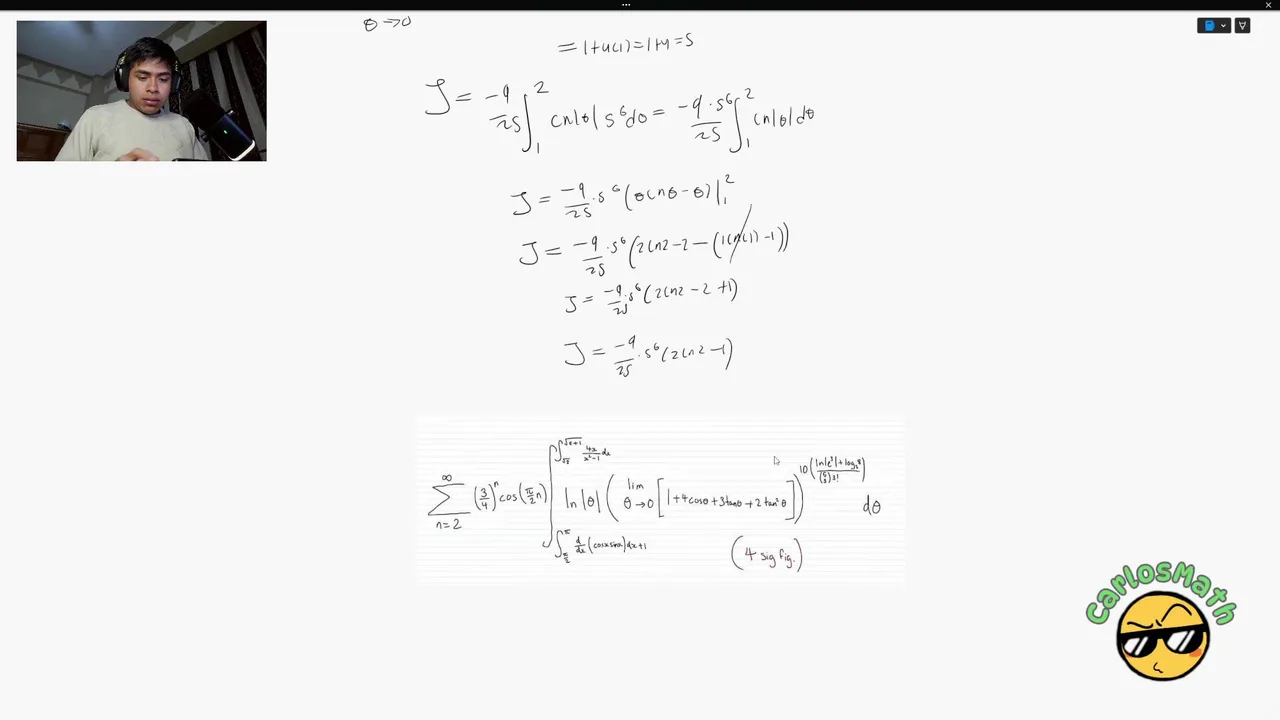 θ→0
= 1+4(1)=1+4=5
J = -9/25 ∫₁² ln|θ| 5⁶dθ = -9·5⁶/25 ∫₁² ln|θ|dθ
J = -9/25 ·5⁶ (θlnθ-θ)|₁²
J = -9/25 ·5⁶ (2ln2-2-(1ln(1)-1))
J = -9/25 ·5⁶ (2ln2-2+1)
J = -9/25 ·5⁶ (2ln2-1)
∑_{n=2}^{∞} (3/4)ⁿ cos(π/2 n) ∫_{∫_{π/2}^{π} d/dx (cosxsinx)dx+1}^{∫_{√2}^{√(e+1)} 4x/(x²-1) dx} ln|θ| (lim_{θ→0} [1+4cosθ+3tanθ+2tan²θ])
dθ
(4 sig fig.)
CarlosMath